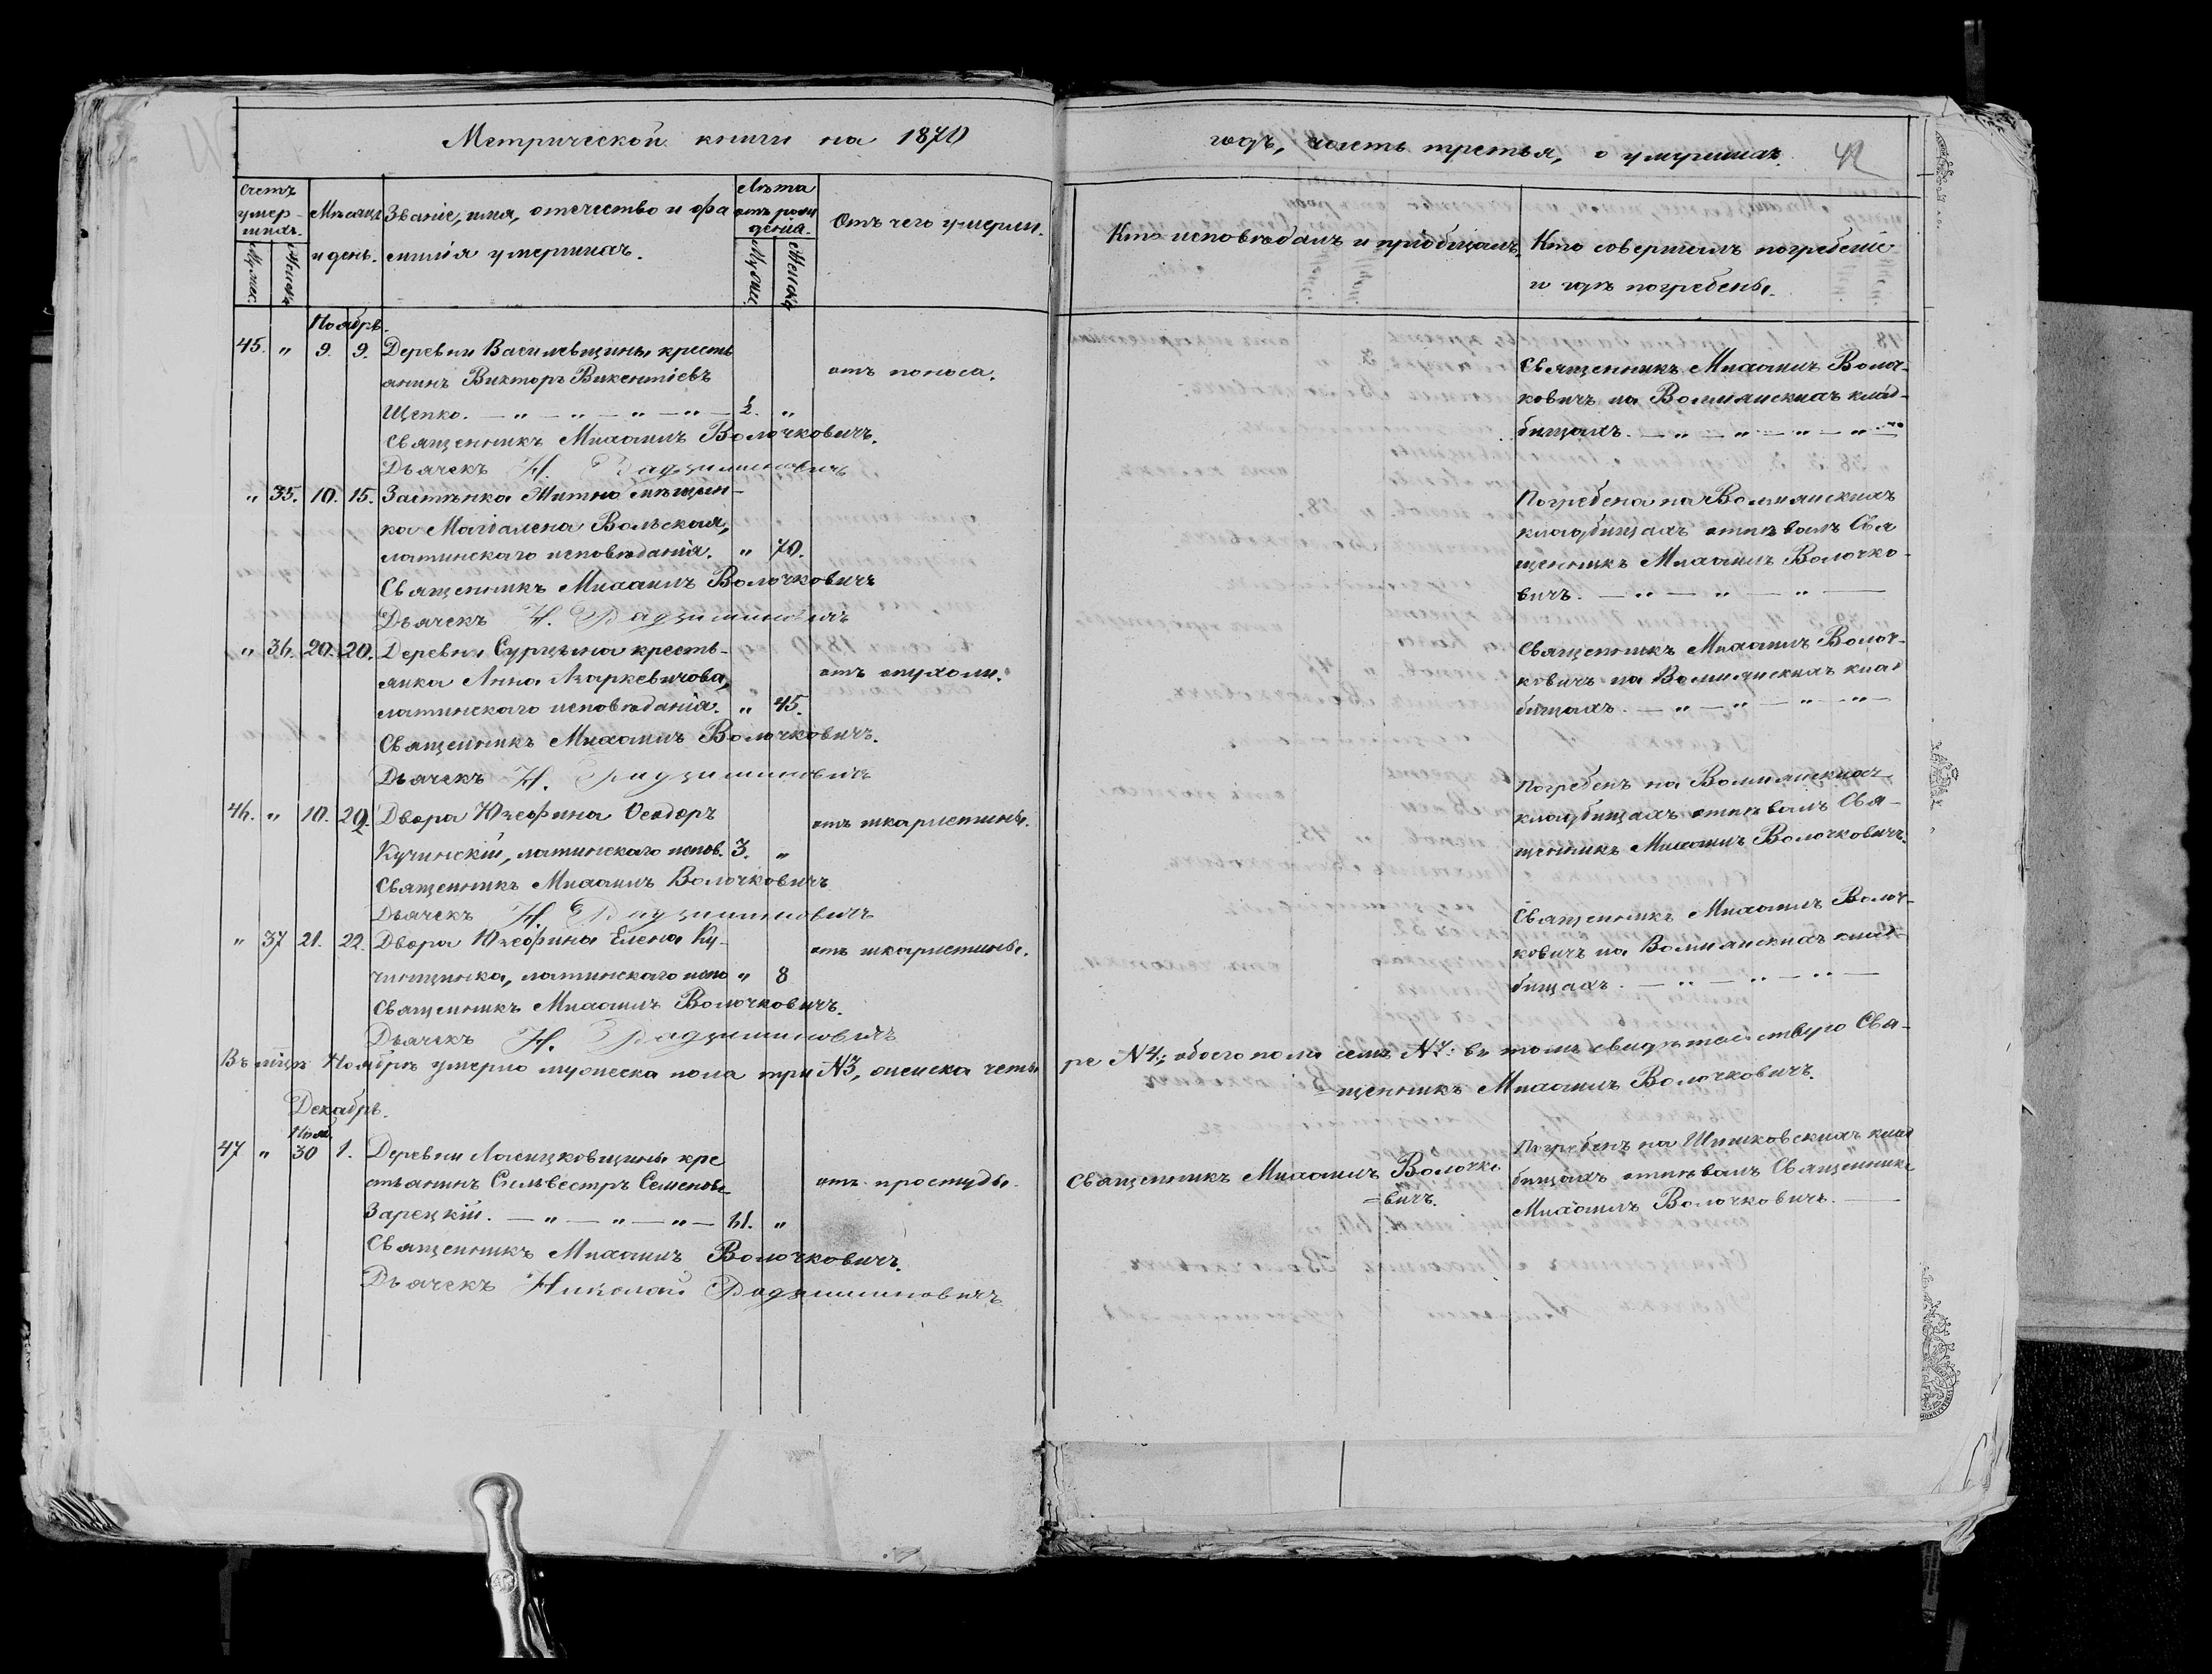 Метрической книги на 1870
годъ, часть третья, о умершихъ.
42
Счетъ умер-шихъ.
Мужес. Женск.
Мѣсяцъ и день.
Званіе, имя, отечество и фа
милія умершихъ.
Лѣта отъ рож дѣнія.
Мужес. Женск.
Отъ чего умерли.
Кто исповѣдалъ и пріобщалъ.
Кто совершалъ погребеніе
и гдѣ погребены.
Ноябрь.
45. " 9. 9. Деревни Василевщины кресть
янинъ Викторъ Викентіевъ
отъ поноса.
Щепко. — " — " — " — " — ½. "
Священникъ Михаилъ Волочковичъ.
Дьячекъ Н. Радзиминовичъ
Священникъ Михаилъ Волоч-
ковичъ на Волмянскихъ клад-
бищахъ. — " — " — " — " —
" 35. 10. 15. Застѣнка Житно мѣщан-
ка Магдалена Вольская,
латинскаго исповѣданія. " 70.
Священникъ Михаилъ Волочковичъ
Дьячекъ Н. Радзиминовичъ
Погребена на Волмянскихъ
кладбищахъ отпѣвалъ Свя
щенникъ Михаилъ Волочко-
вичъ. — " — " — " —
" 36. 20. 20. Деревни кресть-
янка Анна Азаркевичова,
отъ опухоли.
латинскаго исповѣданія. " 45.
Священникъ Михаилъ Волочковичъ.
Дьячекъ Н. Радзиминовичъ
Священникъ Михаилъ Волоч-
ковичъ на Волмянскихъ клад
бищахъ. — " — " — " — " —
46. " 10. 20. Двора Юзефина Ѳеодоръ
отъ шкарлетины.
Кучинскій, латинскаго испов. 3. "
Священникъ Михаилъ Волочковичъ
Дьячекъ Н. Радзиминовичъ
Погребенъ на Волмянскихъ
кладбищахъ отпѣвалъ Свя-
щенникъ Михаилъ Волочковичъ.
" 37 21. 22. Двора Юзефина Елена Ку-
отъ шкарлетины.
чинщинка, латинскаго испо " 8
Священникъ Михаилъ Волочковичъ.
Дьячекъ Н. Радзиминовичъ
Священникъ Михаилъ Волоч-
ковичъ на Волмянскихъ клад-
бищахъ. — " — " — " —
Въ мцѣ Ноябрѣ умерло мужеска пола три №3, женска четы
ре №4; обоего пола семь №7: въ томъ свидѣтельствую Свя-
щенникъ Михаилъ Волочковичъ.
Декабрь.
Нояб.
47 " 30 1. Деревни Ласицковщины кре
стьянинъ Сильвестръ Семеновъ
отъ простуды.
Зарецкій. — " — " — " — 61. "
Священникъ Михаилъ Волочковичъ.
Дьячекъ Николай Радзиминовичъ
Священникъ Михаилъ Волочко
=вичъ.
Погребенъ на Шишковскихъ клад
бищахъ отпѣвалъ Священникъ
Михаилъ Волочковичъ. —